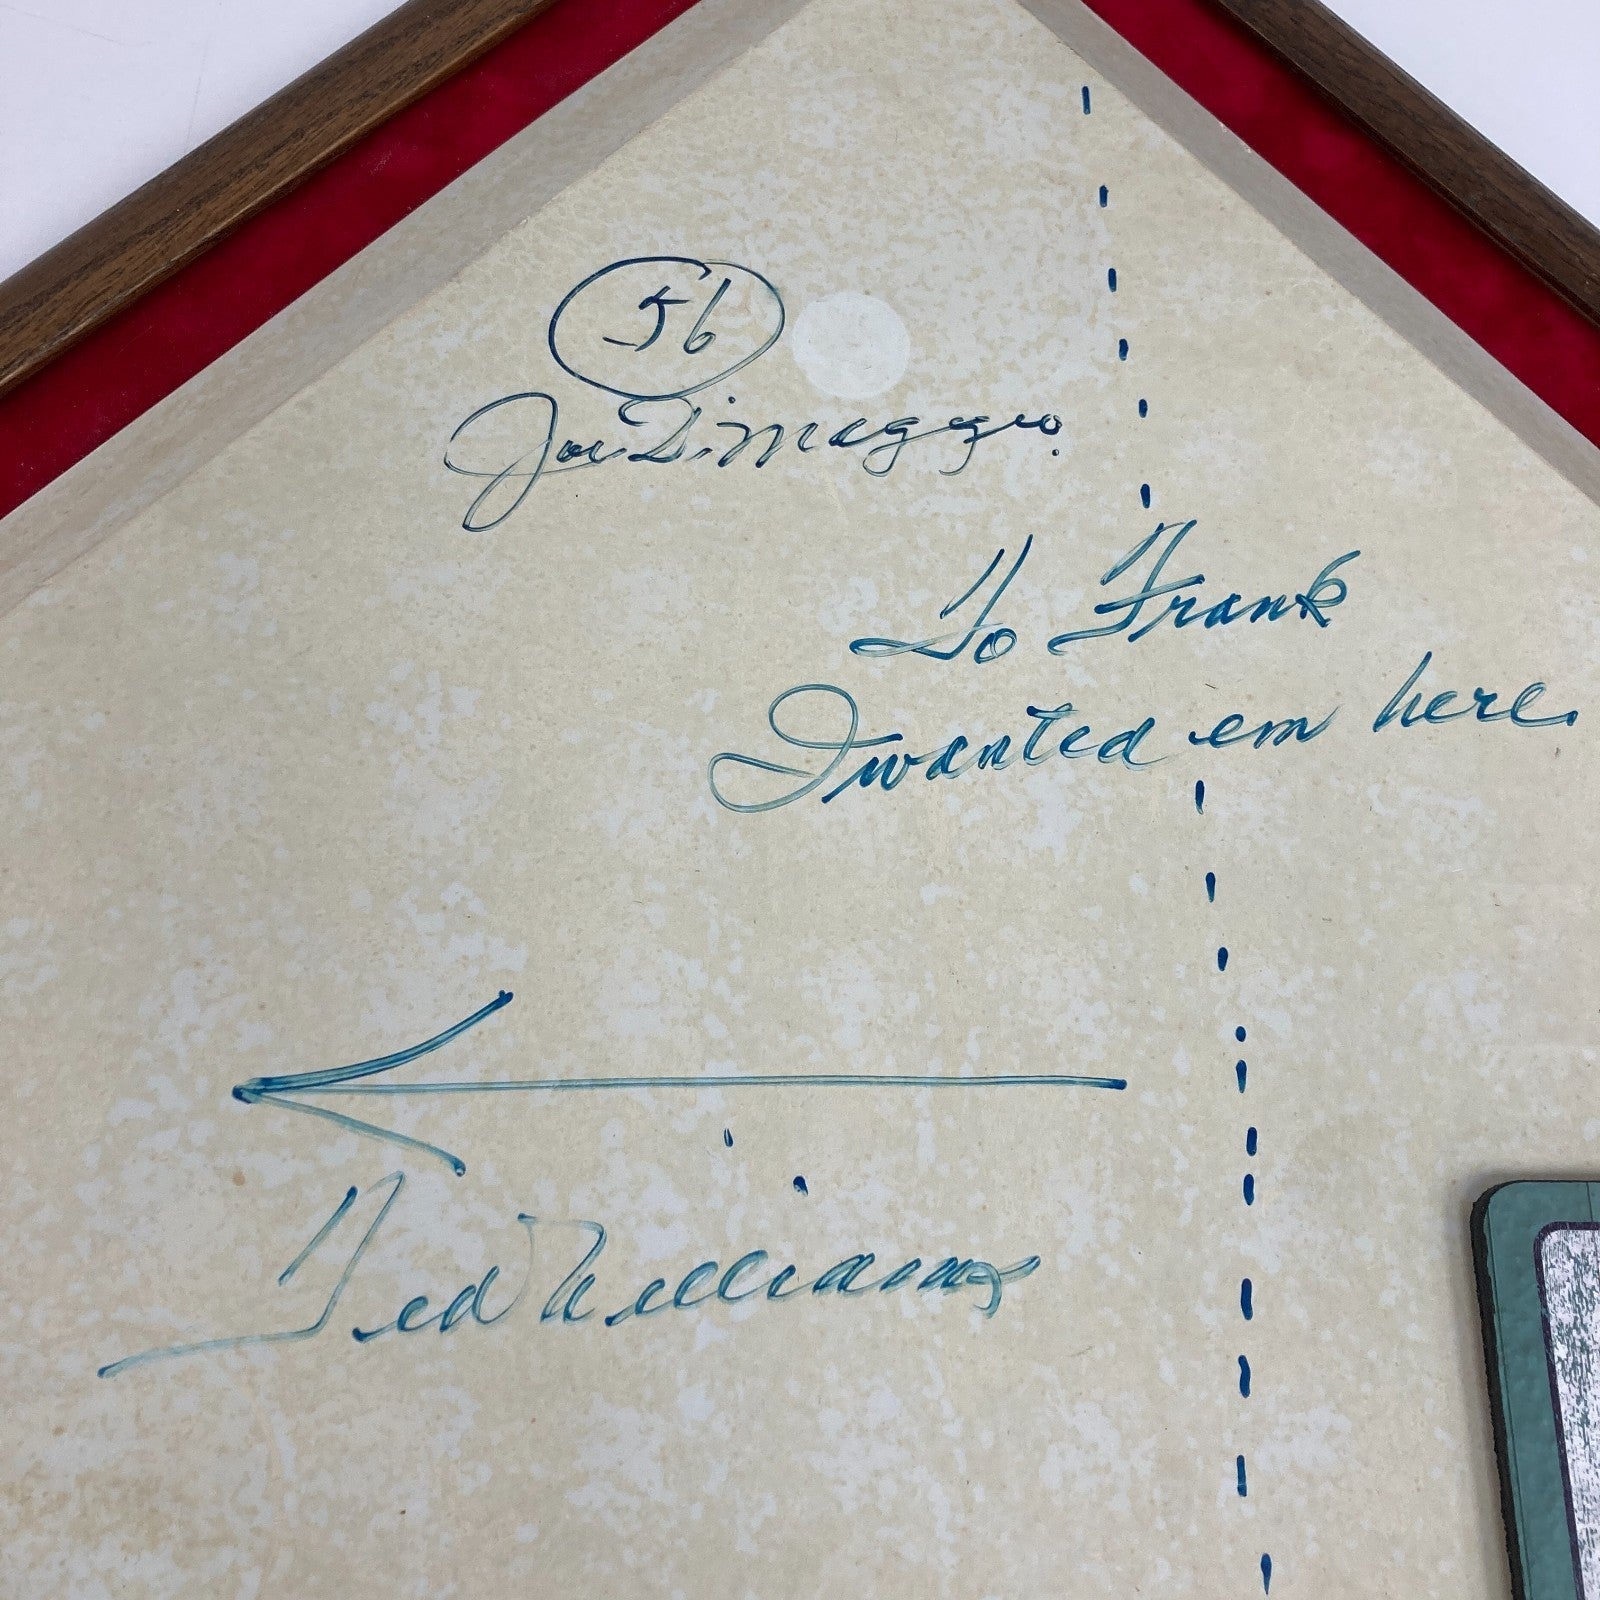 56
Joe DiMaggio.
To Frank
I wanted em here.
Ted Williams